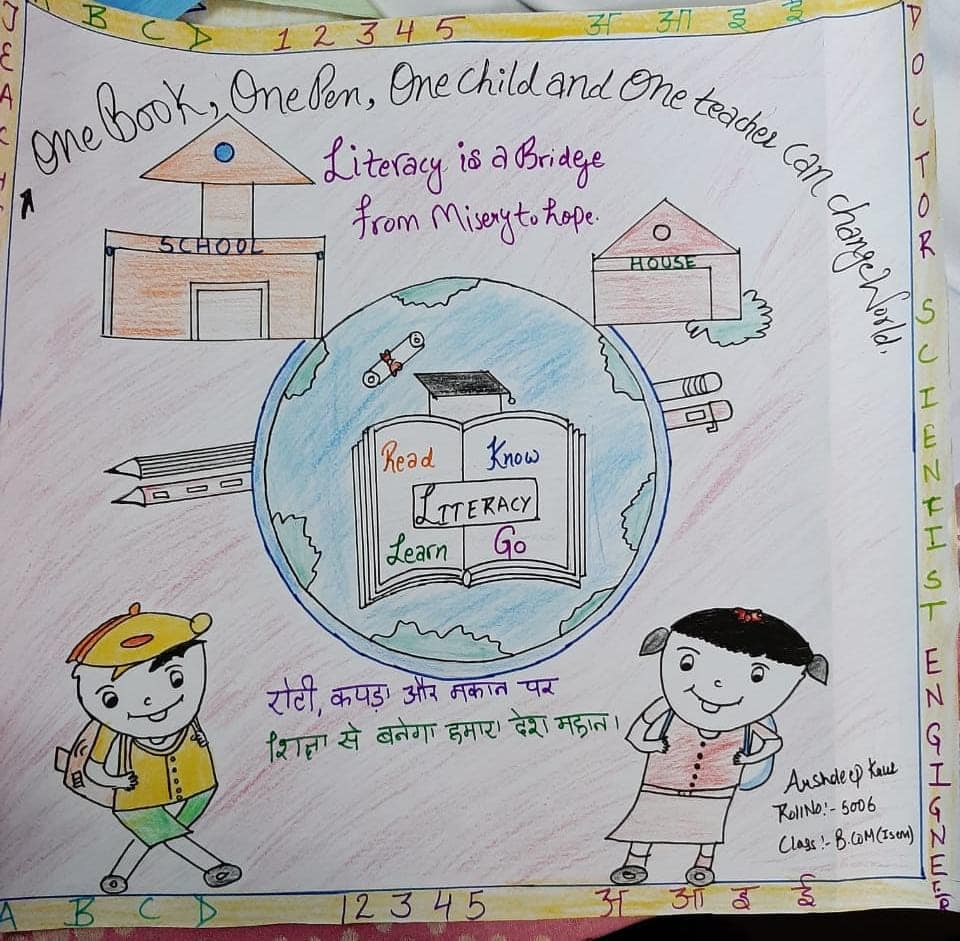 B C D 1 2 3 4 5 अ आ इ ई
One Book, One Pen, One Child and One teacher can change World.
Literacy is a Bridge
from Misery to hope.
SCHOOL
HOUSE
Read Know
LITERACY
Learn Go
रोटी, कपड़ा और मकान पर
शिक्षा से बनेगा हमारा देश महान।
Arshdeep Kaur
Roll No:- 5006
Class:- B.COM (I sem)
DOCTOR SCIENTIST ENGIGNEER
A B C D 1 2 3 4 5 अ आ इ ई